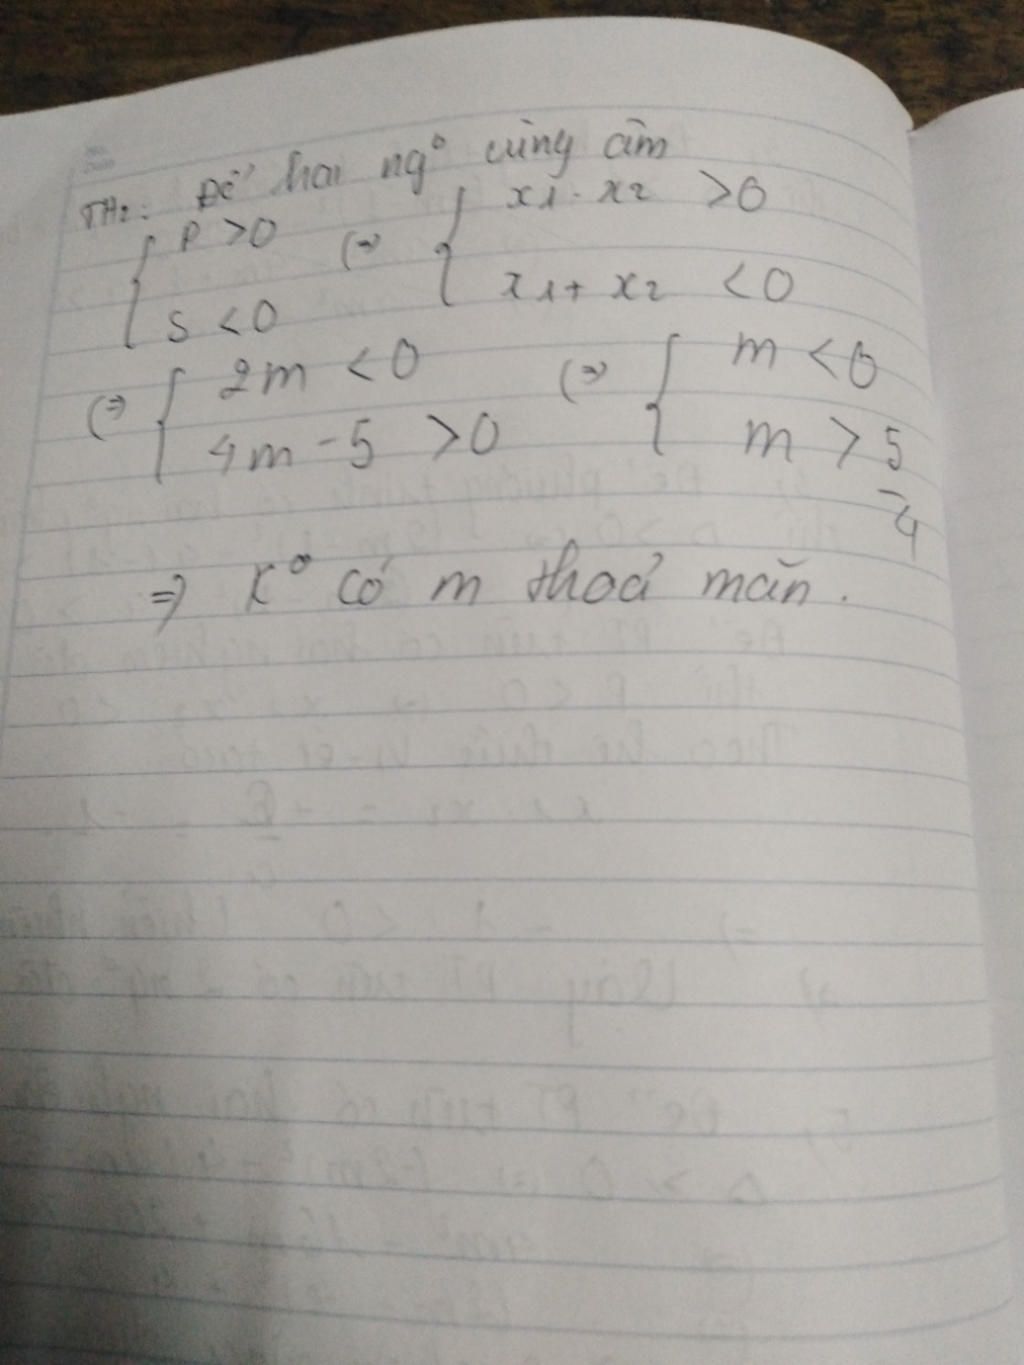 TH2: Để hai ngº cùng âm
{ P > 0 (=) { x1 . x2 > 0
{ S < 0 { x1 + x2 < 0
(=) { 2m < 0 (=) { m < 0
{ 4m - 5 > 0 { m > 5/4
=) Kº có m thoả mãn .